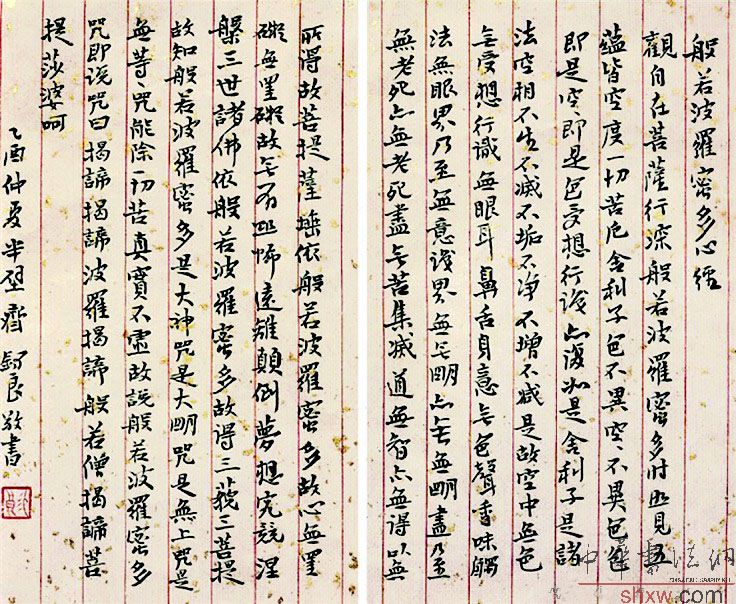 般若波羅蜜多心經
觀自在菩薩行深般若波羅蜜多时照見五
蘊皆空度一切苦厄舍利子色不異空々不異色色
即是空即是色受想行識亦復如是舍利子是諸
法空相不生不滅不垢不淨不增不減是故空中無色
無受想行識無眼耳鼻舌身意無色聲香味觸
法無眼界乃至無意識界無無明亦無無明盡乃至
無老死亦無老死盡無苦集滅道無智亦無得以無
所得故菩提薩埵依般若波羅蜜多故心無罣
礙無罣礙故無有恐怖遠離顛倒夢想究竟涅
槃三世諸佛依般若波羅蜜多故得三藐三菩提
故知般若波羅蜜多是大神咒是大明咒是無上咒是
無等咒能除一切苦真實不虛故說般若波羅蜜多
咒即說咒曰揭諦揭諦波羅揭諦般若僧揭諦菩
提莎婆呵
乙酉仲夏半壁齋良敬書
中華書法網
shxw.com